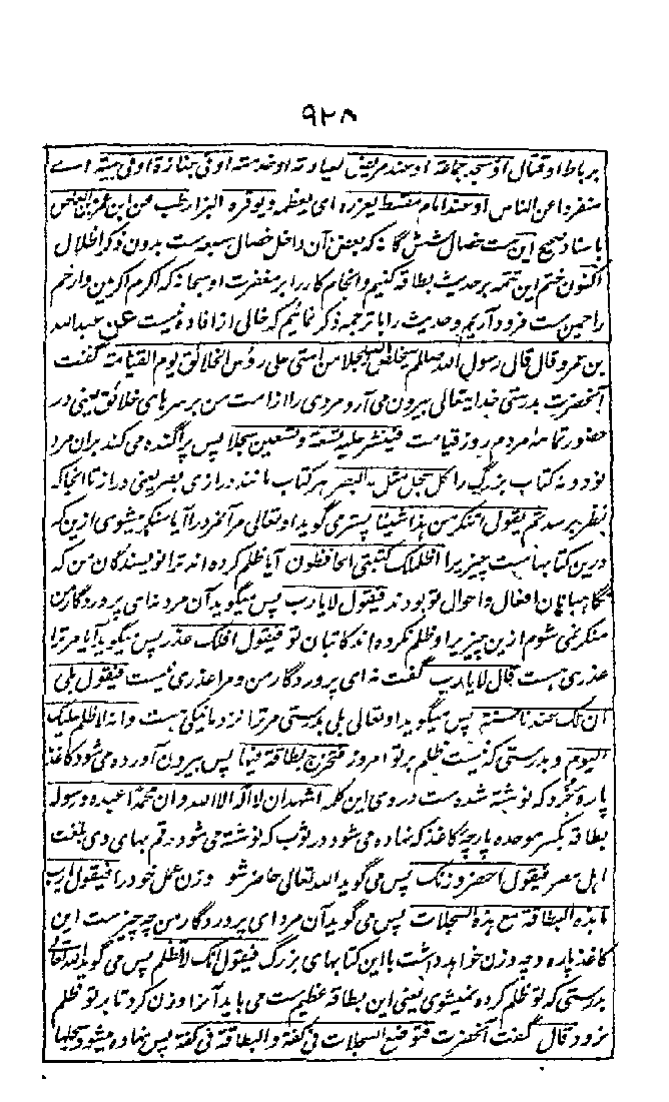 ۹۲۸
بر باط او قتال او مسجد جماعة او عند مریض لعیادته او خدمته او فی جنازة او فی بیته اے
منفردا عن الناس او عند امام مقسط یعزره ای یعظمه و یوقره البزار طب عن ابن عمرو بن العاص
باسناد صحیح این ست خصال شش گانه که بعض آن داخل خصال سبعه ست بدون ذکر اظلال
اکنون ختم این تتمه بر حدیث بطاقه کنیم و انجام کار را بر مغفرت او سبحانه که اکرم اکرمین و ارحم
راحمین ست فرود آریم و حدیث را با ترجمه ذکر نمائیم که خالی از افاده نیست عن عبدالله
بن عمرو قال قال رسول الله صلعم سیخلص الله رجلا من امتی علی رؤس الخلائق یوم القیامة گفت
آنحضرت بدرستی خدایتعالی بیرون می آرد مردی را از امت من بر سرهای خلائق یعنی در
حضور تمامه مردم روز قیامت فینشر علیه تسعة و تسعین سجلا پس پراگنده می کند بران مرد
نود و نه کتاب بزرگ را کل سجل مثل مد البصر هر کتاب مانند درازی بصر یعنی دراز تا آنجا که
نظر برسد ثم یقول اتنکر من هذا شیئا پستر می گوید او تعالی مر آنمرد را آیا منکر میشوی ازین که
درین کتابهاست چیزیرا اظلمک کتبتی الحافظون آیا ظلم کرده اند ترا نویسندگان من که
نگاهبانان افعال و احوال تو بودند فیقول لا یا رب پس میگوید آن مرد نه ای پروردگار من
منکر نمی شوم ازین چیزیرا و ظلم نکرده اند کاتبان تو فیقول افلک عذر پس میگوید آیا مر ترا
عذری هست قال لا یا رب گفت نه ای پروردگار من و مرا عذری نیست فیقول بلی
ان لک عندنا حسنة پس میگوید او تعالی بلی بدرستی مر ترا نزد ما نیکی هست و انه لا ظلم علیک
الیوم و بدرستی که نیست ظلم بر تو امروز فتخرج بطاقة فیها پس بیرون آورده می شود کاغذ
پارهٔ خرد که نوشته شده ست در وی این کلمه اشهد ان لا اله الا الله و ان محمدا عبده و رسوله
بطاقه بکسر موحده پارچهٔ کاغذ که نهاده می شود در ثوب که نوشته می شود رقم بهای وی بلغت
اهل مصر فیقول احضر وزنک پس می گوید الله تعالی حاضر شو وزن عمل خود را فیقول یا رب
ما هذه البطاقة مع هذه السجلات پس می گوید آن مرد ای پروردگار من چه چیز ست این
کاغذ پاره و چه وزن خواهد داشت با این کتابهای بزرگ فیقول انک لا تظلم پس می گوید الله تعالی
بدرستی که تو ظلم کرده نمیشوی یعنی این بطاقه عظیم ست می باید آنرا وزن کرد تا بر تو ظلم
نرود قال گفت آنحضرت فتوضع السجلات فی کفة و البطاقة فی کفة پس نهاده میشود سجلها